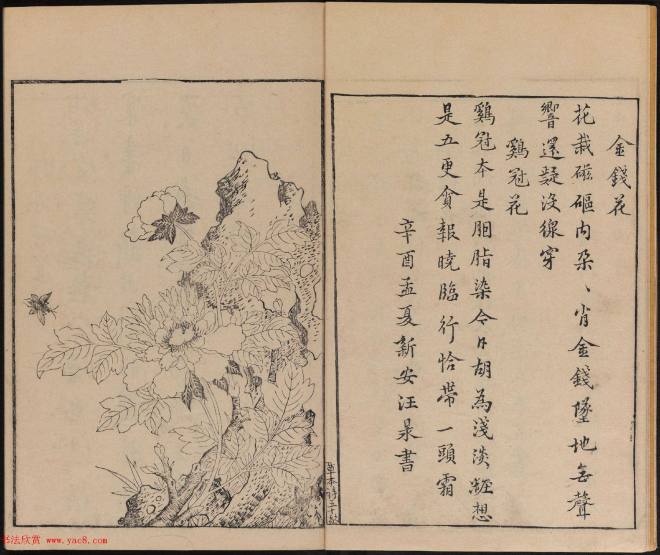 金錢花
花栽磁砠内朶、肖金錢墜地無聲
響還疑沒線穿
鷄冠花
鷄冠本是胭脂染今日胡為淺淡粧想
是五更貪報曉臨行恰帶一頭霜
辛酉孟夏新安汪杲書
草本詩
书法欣赏 www.yac8.com